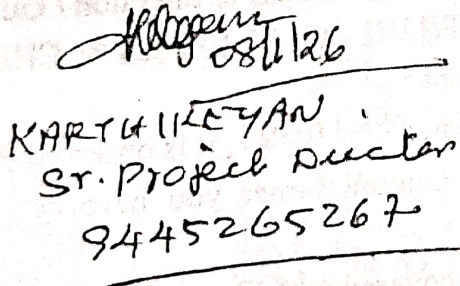 08/1/26
KARTHIKEYAN
Sr. Project Director
9445265267